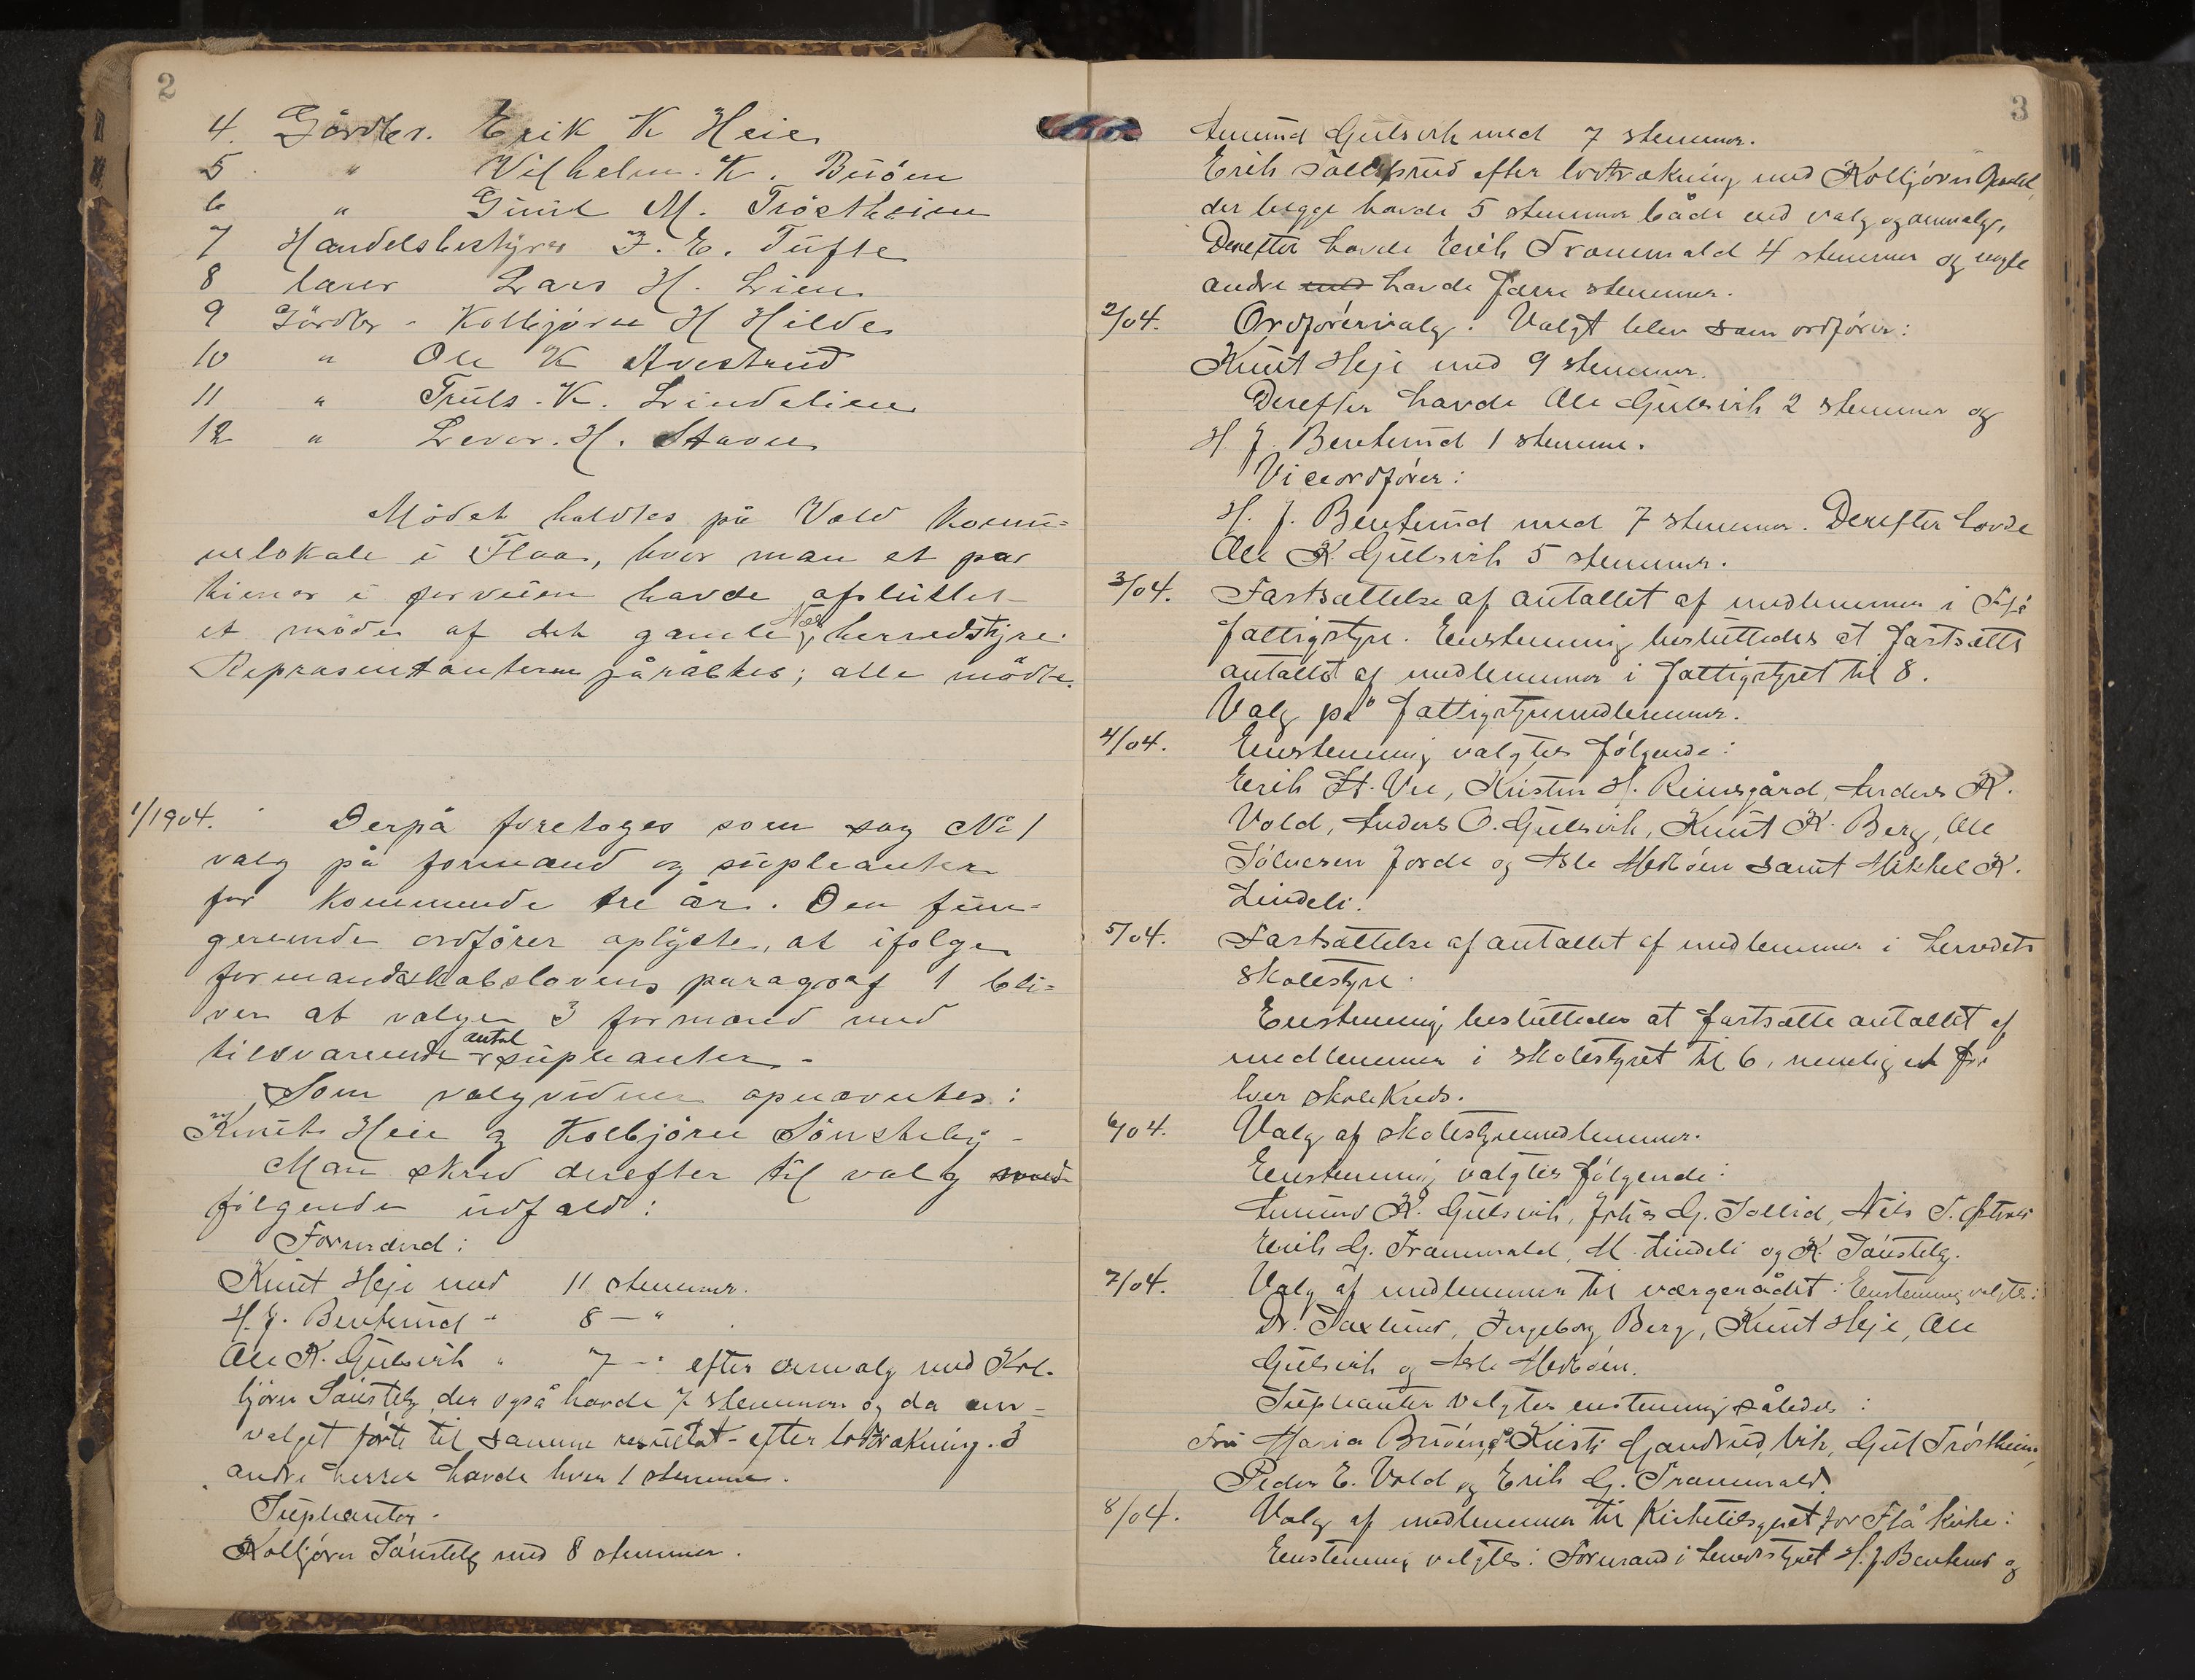 2
4. Gårdbr. Erik K Heie
5 " Vilhelm. K. Buöen
6 " Gunul M. Tröstheim
7 Handelsbestyrer J. E. Tufte
8 lærer Lars H. Lien
9 Gårdbr - Kolbjörn H Hilde
10 " Ole K Avestrud
11 " Truls. K. Lindelien
12 " Levor. H. Stavn
Mödet holdtes på Vold kommu=
nelokale i Flaa, hvor man et par
timer i forveien havde afsluttet
et möde af det gamle Næs herredstyre.
Repræsentanterne påråbtes; alle mödte.
1/1904. Derpå foretoges som sag No 1
valg på formænd og supleanter
for kommende tre år. Den fun=
gerende ordförer oplyste, at ifölge
formandskabslovens paragraf 1 bli=
ver at vælge 3 formænd med
tilsvarende antal supleanter -
Som valgvidner opnævntes:
Knut Heie og Kolbjörn Sönsteby -
Man skred derefter til valg med
fölgende udfald:
Formænd:
Knut Heje med 11 stemmer.
H. J. Bentsrud " 8 — "
Ole K. Gulsvik " 7 — " efter omvalg med Kol-
björn Sönsteby, der også havde 7 stemmer og da om=
valget förte til samme resultat - efter lodtrækning. 3
andre herrer havde hver 1 stemme.
Supleanter -
Kolbjörn Sönsteby med 8 stemmer.
3
Amund Gulsvik med 7 stemmer.
Erik efter lodtrækning med Kolbjörn
der begge havde 5 stemmer både ved valg og omvalg,
Derefter havde Erik Frömmald 4 stemmer og nogle
andre med havde færre stemmer.
2/04. Ordförervalg: Valgt blev som ordförer:
Knut Heje med 9 stemmer.
Derefter havde Ole Gulsvik 2 stemmer og
H. J. Bentsrud 1 stemme.
Viceordförer:
H. J. Bentsrud med 7 stemmer. Derefter havde
Ole K. Gulsvik 5 stemmer.
3/04. Fastsættelse af antallet af medlemmer i Flå
fattigstyre. Enstemmig besluttedes at fastsætte
antallet af medlemmer i fattigstyret til 8.
Valg på fattigstyremedlemmer.
4/04. Enstemmig valgtes fölgende:
Erik St. Ve, Kristen H. Reinsgård, Anders K.
Vold, Anders O. Gulsvik, Knut K. Berg, Ole
Sölvesen Jorde og Asle Medböen samt Mikkel K.
Lindeli.
5/04. Fastsættelse af antallet af medlemmer i herredets
skolestyre.
Enstemmig besluttedes at fastsætte antallet af
medlemmer i skolestyret til 6, nemlig et for
hver skolekreds.
6/04. Valg af skolestyremedlemmer.
Enstemmig valgtes fölgende:
Amund K. Gulsvik, G. Sollid, Nils S.
Erik G. Frömmald, M. Lindeli og K. Sönsteby.
7/04. Valg af medlemmer til værgerådet: Enstemmig valgtes:
Dr. Saxlund, Ingeborg Berg, Knut Heje, Ole
Gulsvik og Asle Medböen.
Supleanter valgtes enstemmig således:
Fru Maria Buöen, Kristi Gandrud, Vik, Gul Tröstheim,
Peder E. Vold og Erik G. Frömmald.
8/04. Valg af medlemmer til kirketilsynet for Flå kirke:
Enstemmig valgtes: Formand i herredstyret H. J. Bentsrud og